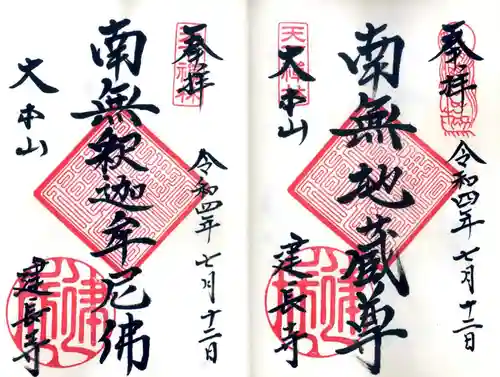 奉拝
天祥林
大本山
南無地蔵尊
令和四年七月十二日
建長寺
奉拝
天祥林
大本山
南無釈迦牟尼佛
令和四年七月十二日
建長寺